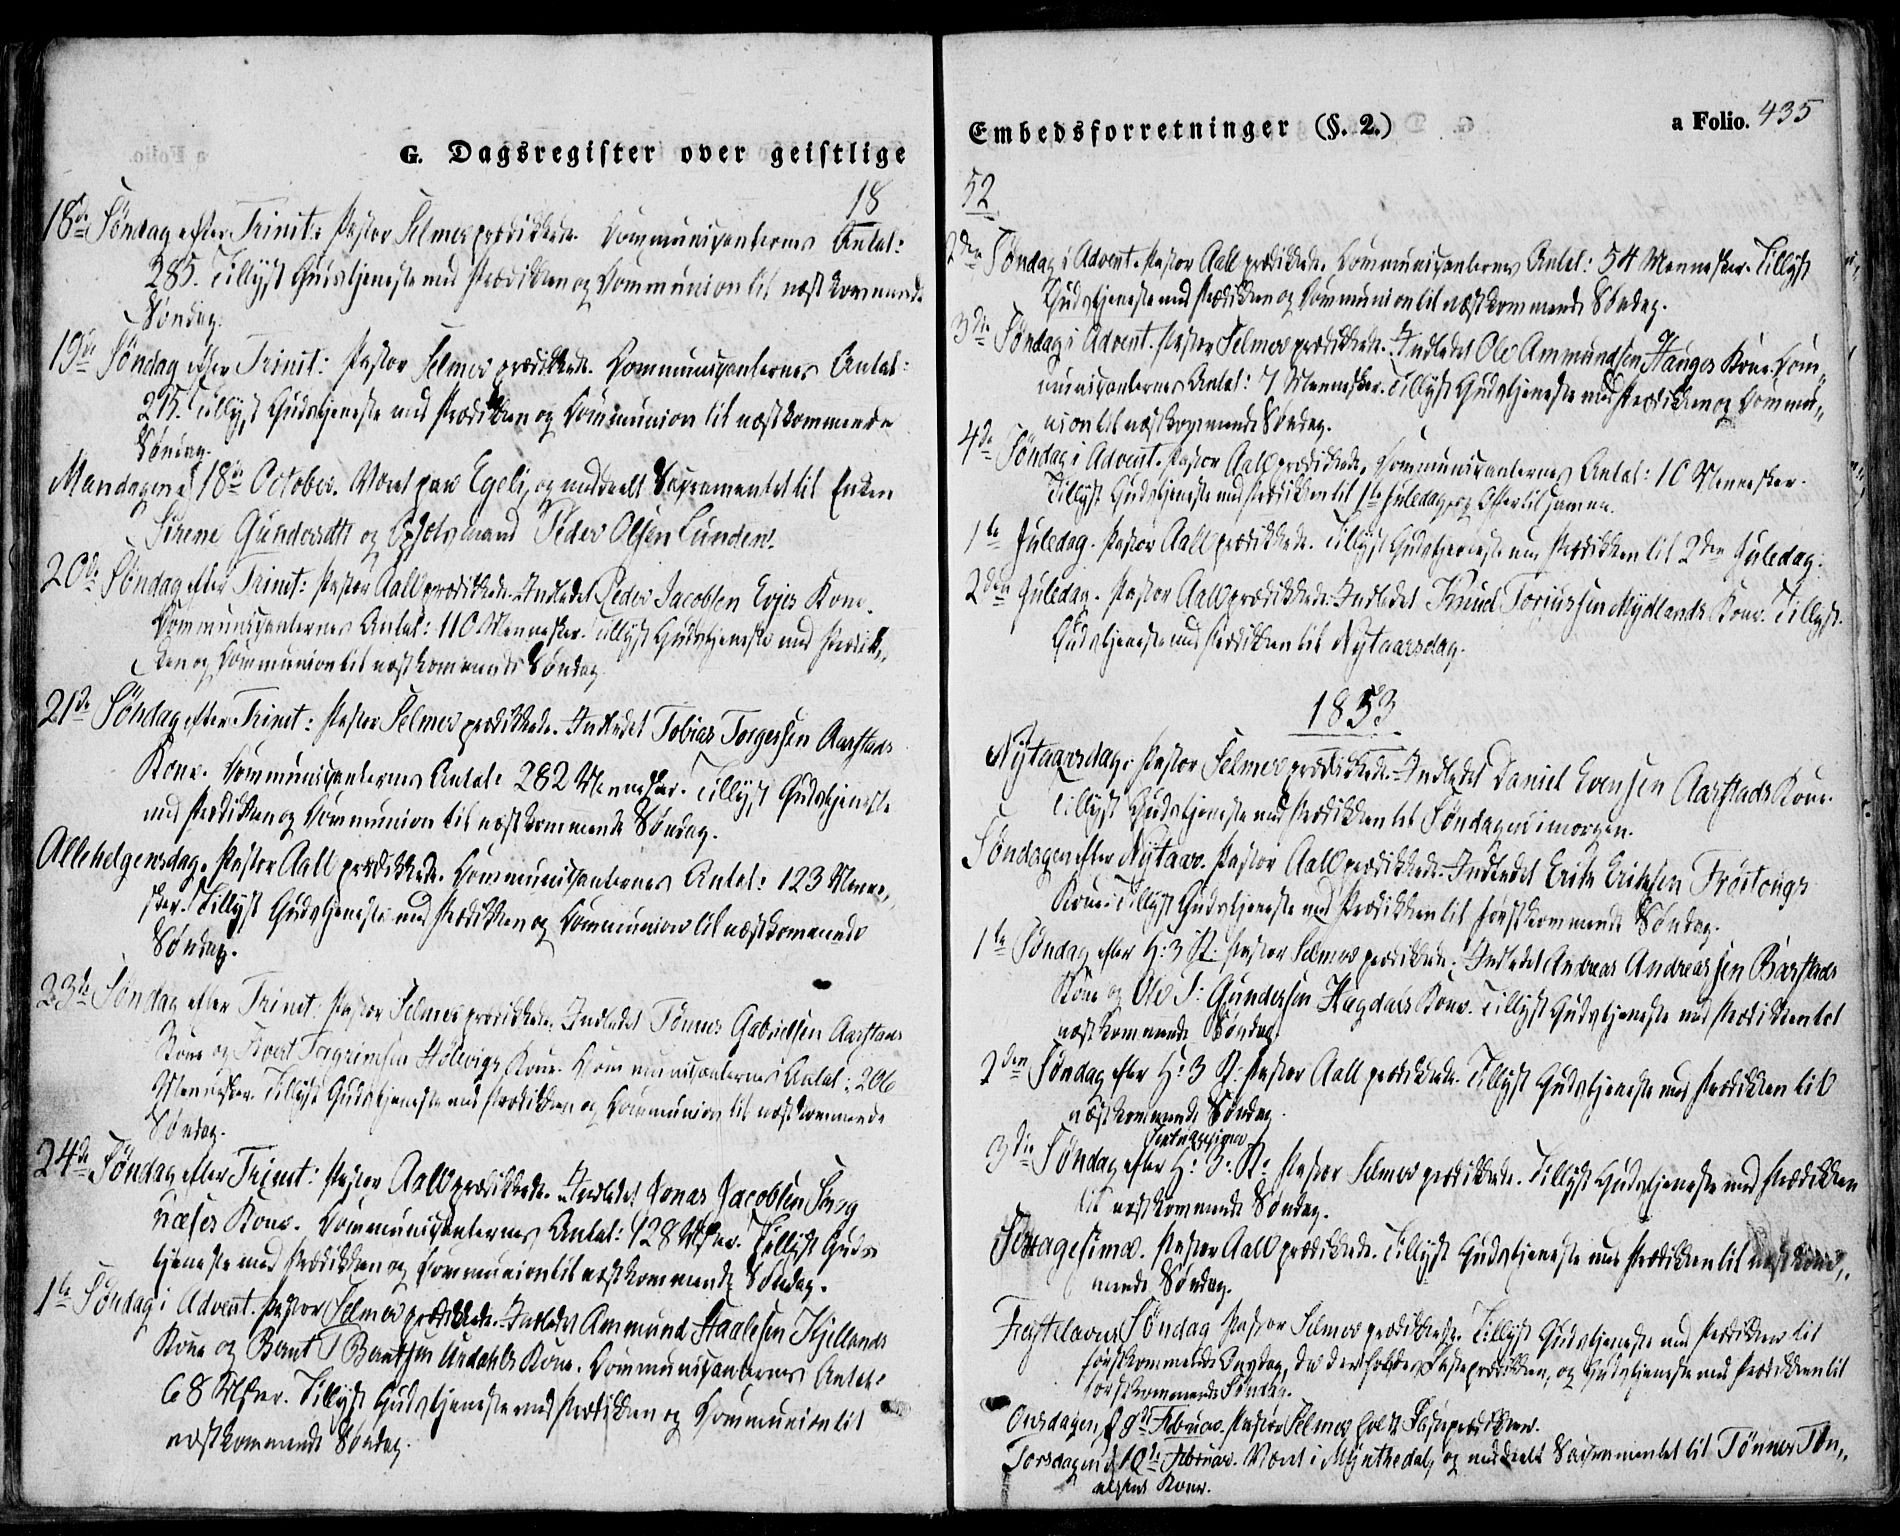 G. Dagsregister over geistlige
18
18de Søndag efter Trinit: Pastor Selmer prædikede. Communicanternes Antal:
285. Tillyst Gudstjeneste med Prædiken og Communion til næstkommende
Søndag.
19de Søndag efter Trinit: Pastor Selmer prædikede. Communicanternes Antal:
295. Tillyst Gudstjeneste med Prædiken og Communion til næstkommende
Søndag.
Mandagen d 18de October. Været paa Egeli, og meddeelt Sacramentet til Enken
Sirene Gundersdtr og Peder Olsen Lunden.
20de Søndag efter Trinit: Pastor Aall prædikede. Indledet Peder Jacobsen Evjes Kone.
Communicanternes Antal: 110 Mennesker. Tillyst Gudstjeneste med Prædik„
ken og Communion til næstkommende Søndag.
21de Søndag efter Trinit: Pastor Selmer prædikede. Indledet Tobias Torgersen Aarstads
Kone. Communicanternes Antal: 282 Mennesker. Tillyst Gudstjeneste
med Prædiken og Communion til næstkommende Søndag.
Allehelgensdag. Pastor Aall prædikede. Communicanternes Antal: 123 Menne„
sker. Tillyst Gudstjeneste med Prædiken og Communion til næstkommende
Søndag.
23de Søndag efter Trinit: Pastor Selmer prædikede. Indledet Tønnes Gabrielsen Aarstads
Kone og Torgrimsen Kone. Communicanternes Antal: 206
Mennesker. Tillyst Gudstjeneste med Prædiken og Communion til næstkommende
Søndag.
24de Søndag efter Trinit: Pastor Aall prædikede. Indledet Jonas Jacobsen
Kone. Communicanternes Antal: 128 Msker. Tillyst Guds
tjeneste med Prædiken og Communion til næstkommende Søndag.
1te Søndag i Advent. Pastor Selmer prædikede. Indledet Ammund Staalesen Kjellands
Kone og Bernt T Berntsen Kone. Communicanternes Antal:
68 Msker. Tillyst Gudstjeneste med Prædiken og Communion til
næstkommende Søndag.
Embedsforretninger (§. 2.)
a Folio. 435
52
2den Søndag i Advent. Pastor Aall prædikede. Communicanternes Antal: 54 Mennesker. Tillyst
Gudstjeneste med Prædiken og Communion til næstkommende Søndag.
3die Søndag i Advent. Pastor Selmer prædikede. Indledet Ole Ammundsen Stanges Kone. Com„
municanternes Antal: 7 Mennesker. Tillyst Gudstjeneste med Prædiken og Commu„
nion til næstkommende Søndag.
4de Søndag i Advent. Pastor Aall prædikede. Communicanternes Antal: 10 Mennesker.
Tillyst Gudstjeneste med Prædiken til 1ste Juledag og Offer til samme.
1te Juledag. Pastor Aall prædikede. Tillyst Gudstjeneste med Prædiken til 2den Juledag.
2den Juledag. Pastor Aall prædikede. Indledet Knud Toriussen Mydlands Kone. Tillyst
Gudstjeneste med Prædiken til Nytaarsdag.
1853
Nytaarsdag. Pastor Selmer prædikede. Indledet Daniel Evensen Aarstads Kone.
Tillyst Gudstjeneste med Prædiken til Søndagen imorgen.
Søndagen efter Nytaar. Pastor Aall prædikede. Indledet Erik Eriksen Frøitlogs
Kone. Tillyst Gudstjeneste med Prædiken til førstkommende Søndag.
1te Søndag efter H: 3 K: Pastor Selmer prædikede. Indledet Andreas Andreassen Barstads
Kone og Ole S: Gundersen Kone. Tillyst Gudstjeneste med Prædiken til
næstkommende Søndag.
2den Søndag efter H: 3 K: Pastor Aall prædikede. Tillyst Gudstjeneste med Prædiken til
næstkommende Søndag.
Septuagesima
3die Søndag efter H: 3: K: Pastor Selmer prædikede. Tillyst Gudstjeneste med Prædiken
til næstkommende Søndag.
Sexagesima. Pastor Aall prædikede. Tillyst Gudstjeneste med Prædiken til næstkom„
mende Søndag.
Fastelavns Søndag Pastor Selmer prædikede. Tillyst Gudstjeneste med Prædiken til
førstkommende Onsdag, da der holdes Fasteprædiken, og Gudstjeneste med Prædiken til
førstkommende Søndag.
Onsdagen d 9de Februar. Pastor Selmer holdt Fasteprædiken.
Torsdagen d 10de Februar. Været i Mynthedal, og meddeelt Sacramentet til Tønnes Tøn„
nesens Kone.